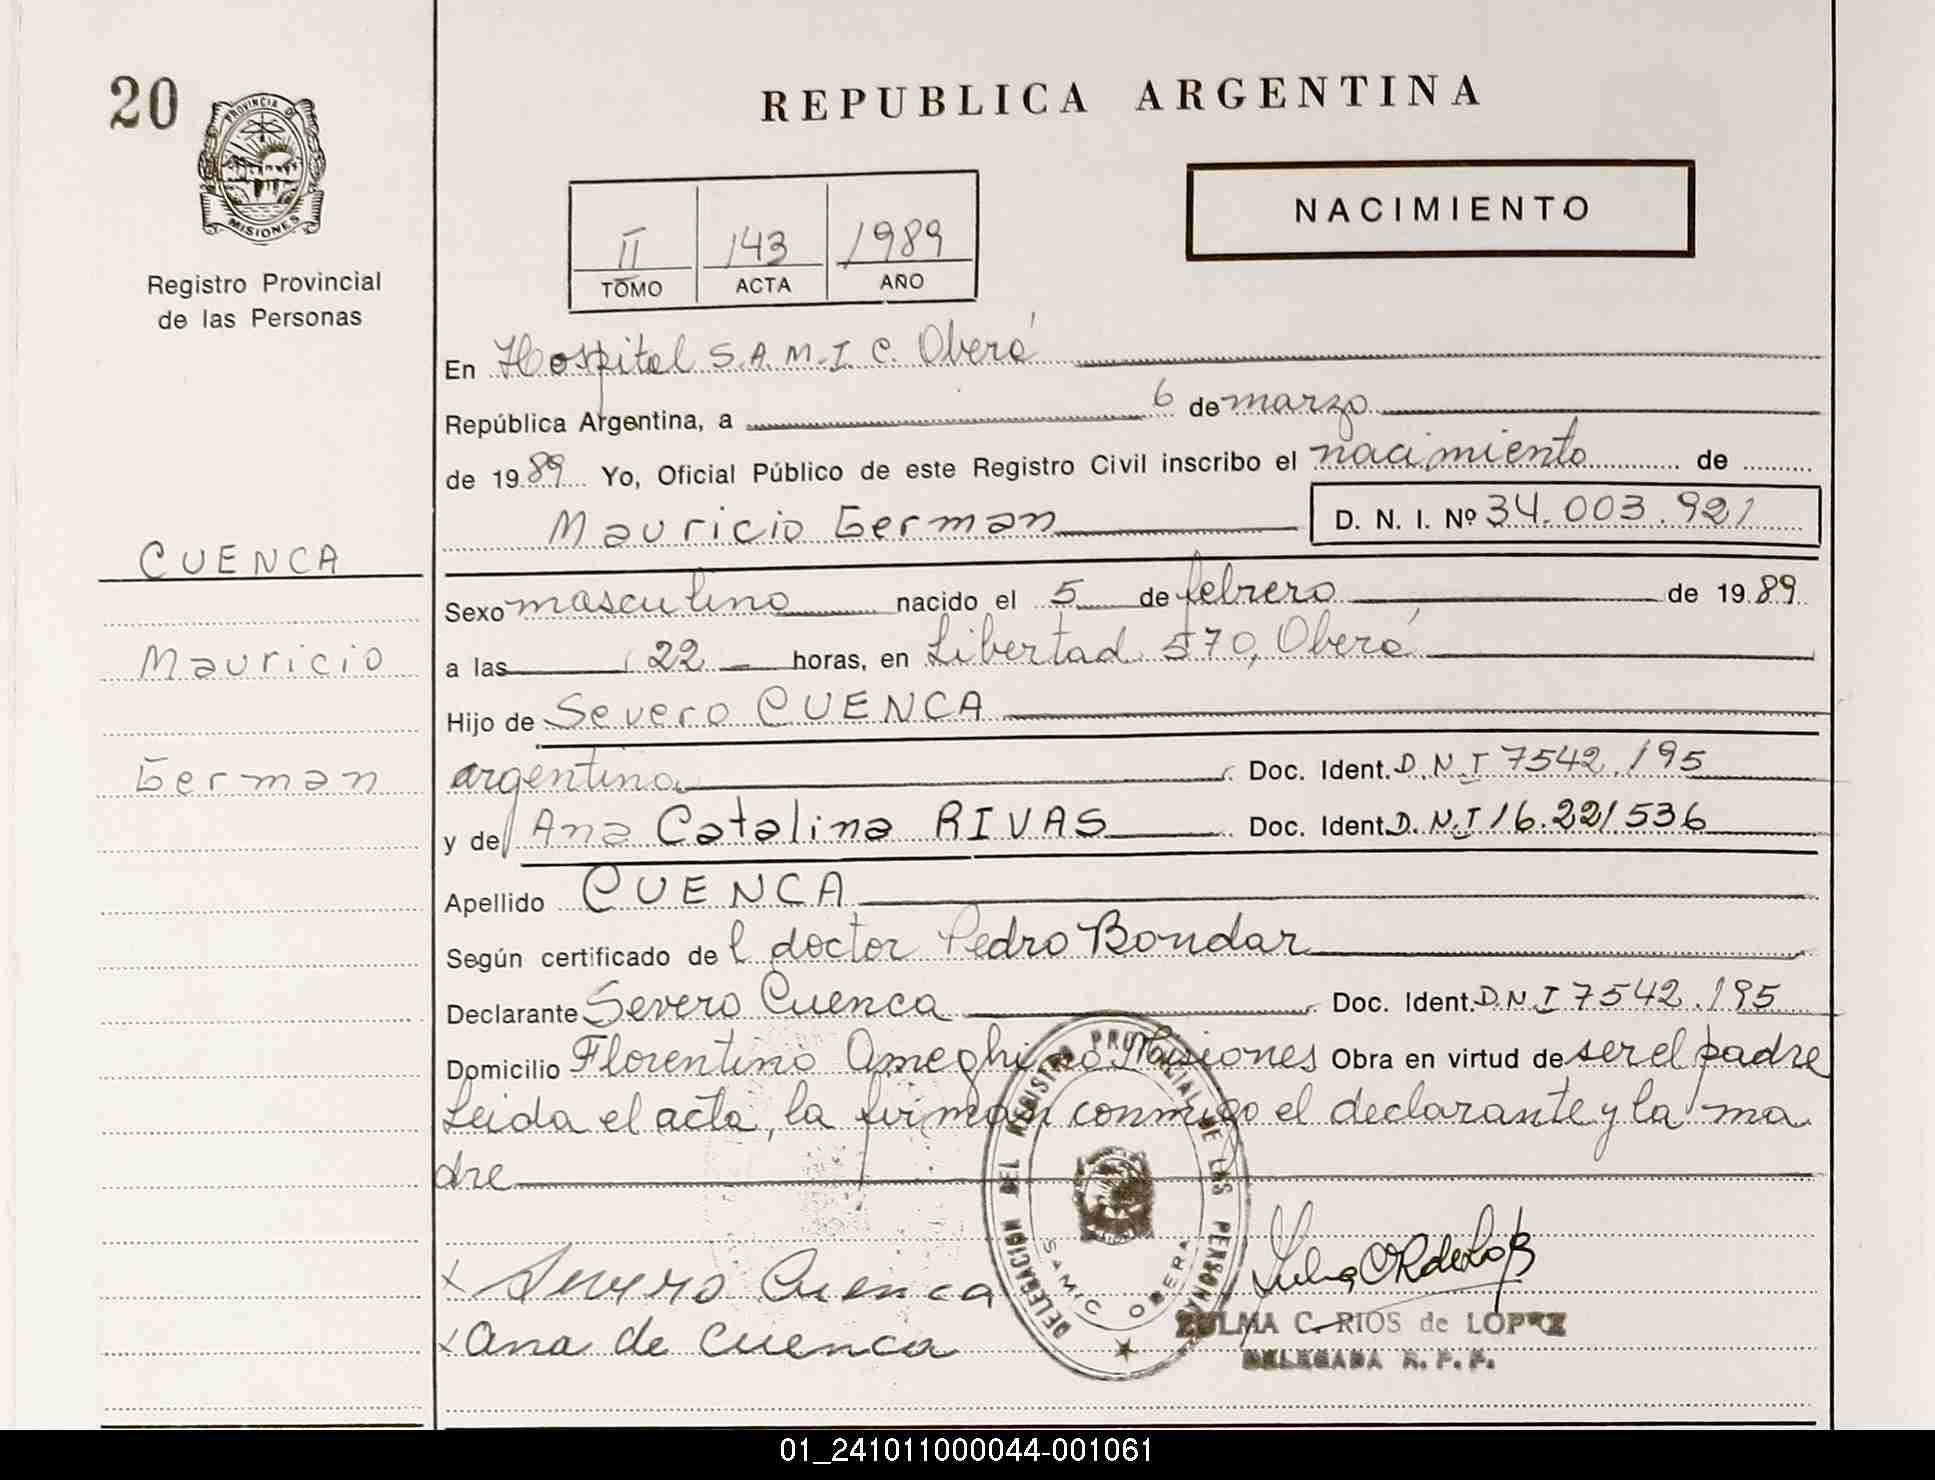 20
PROVINCIA DE
MISIONES
Registro Provincial
de las Personas
REPUBLICA ARGENTINA
NACIMIENTO
II 143 1989
TOMO ACTA AÑO
En Hospital S.A.M.I.C. Oberá
República Argentina, a 6 de marzo
de 1989 Yo, Oficial Público de este Registro Civil inscribo el nacimiento de
Mauricio German D. N. I. Nº 34.003.921
CUENCA
Mauricio
German
Sexo masculino nacido el 5 de febrero de 1989
a las 22 horas, en Libertad 570, Oberá
Hijo de Severo CUENCA
argentina Doc. Ident. D.N.I 7542.195
y de Ana Catalina RIVAS Doc. Ident. D.N.I 16.221536
Apellido CUENCA
Según certificado de l doctor Pedro Bondar
Declarante Severo Cuenca Doc. Ident. D.N.I 7542.195
Domicilio Florentino Ameghino Misiones Obra en virtud de ser el padre
Leida el acta, la firman conmigo el declarante y la ma
dre
DELEGACION DEL REGISTRO PROVINCIAL DE LAS PERSONAS
SAMIC OBERA
Severo Cuenca
Ana de Cuenca
ZULMA C. RIOS de LOPEZ
DELEGADA R. P. P.
01_241011000044-001061